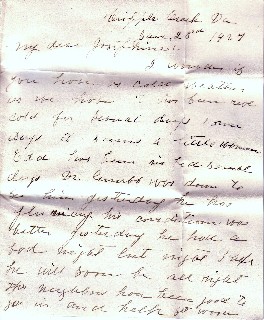 Cripple Creek Va.
Jan. 28th 1927
My dear Josephine:
I wonder if
you have as cold weather
as we have it has been real
cold for several days some
days it seems a little warmer
Edd has been in bed several
days Dr. was down to
see him yesterday he has
his condition was
better yesterday he had a
bad night last night I hope
he will soon be all right
the neighbors have been good to
in and help